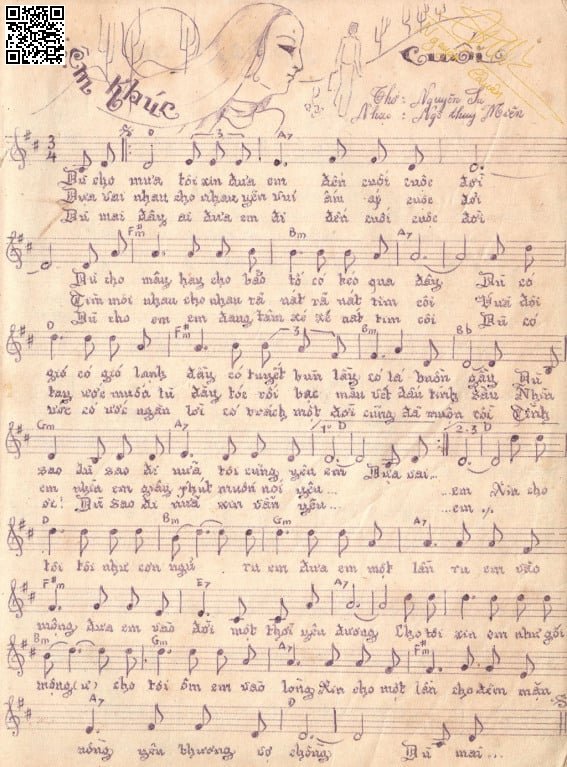 Khúc
Cuối
Thơ: Nguyên Sa
Nhạc: Ngô Thụy Miên
3/4
D 3 A7
Dù cho mưa tôi xin đưa em đến cuối cuộc đời
Dựa vai nhau cho nhau yên vui ấm áp cuộc đời
Dù mai đây ai đưa em đi đến cuối cuộc đời
F#m Bm A7
Dù cho mây hay cho bão tố có kéo qua đây Dù có
Tìm môi nhau cho nhau rã nát rã nát tim côi Vừa đôi
Dù cho em em đang tâm xé xé nát tim côi Dù có
D F#m 3 Bm Bb
gió có gió lạnh đầy có tuyết bùn lầy có lá buồn gầy Dù
tay ước muốn tù đầy tóc rối bạc màu vết dấu tình sầu Nhìn
ước có ước ngàn lời có trách một đời cũng đã muộn rồi Tình
Gm A7 1° D 2.3 D
sao dù sao đi nữa tôi cũng yêu em Dựa vai...
em nhìn em giây phút muốn nói yêu... ...em Xin cho
ơi! Dù sao đi nữa xin vẫn yêu... ...em
D Bm Gm A7
tôi tôi như cơn ngủ ru em đưa em một lần ru em vào
F#m E7 A7
mộng đưa em vào đời một thời yêu đương Cho tôi xin em như gối
Bm Gm A7 F#m
mộng (ư) cho tôi ôm em vào lòng Xin cho một lần cho đêm mặn
A7 D
nồng yêu thương vợ chồng Dù mai...